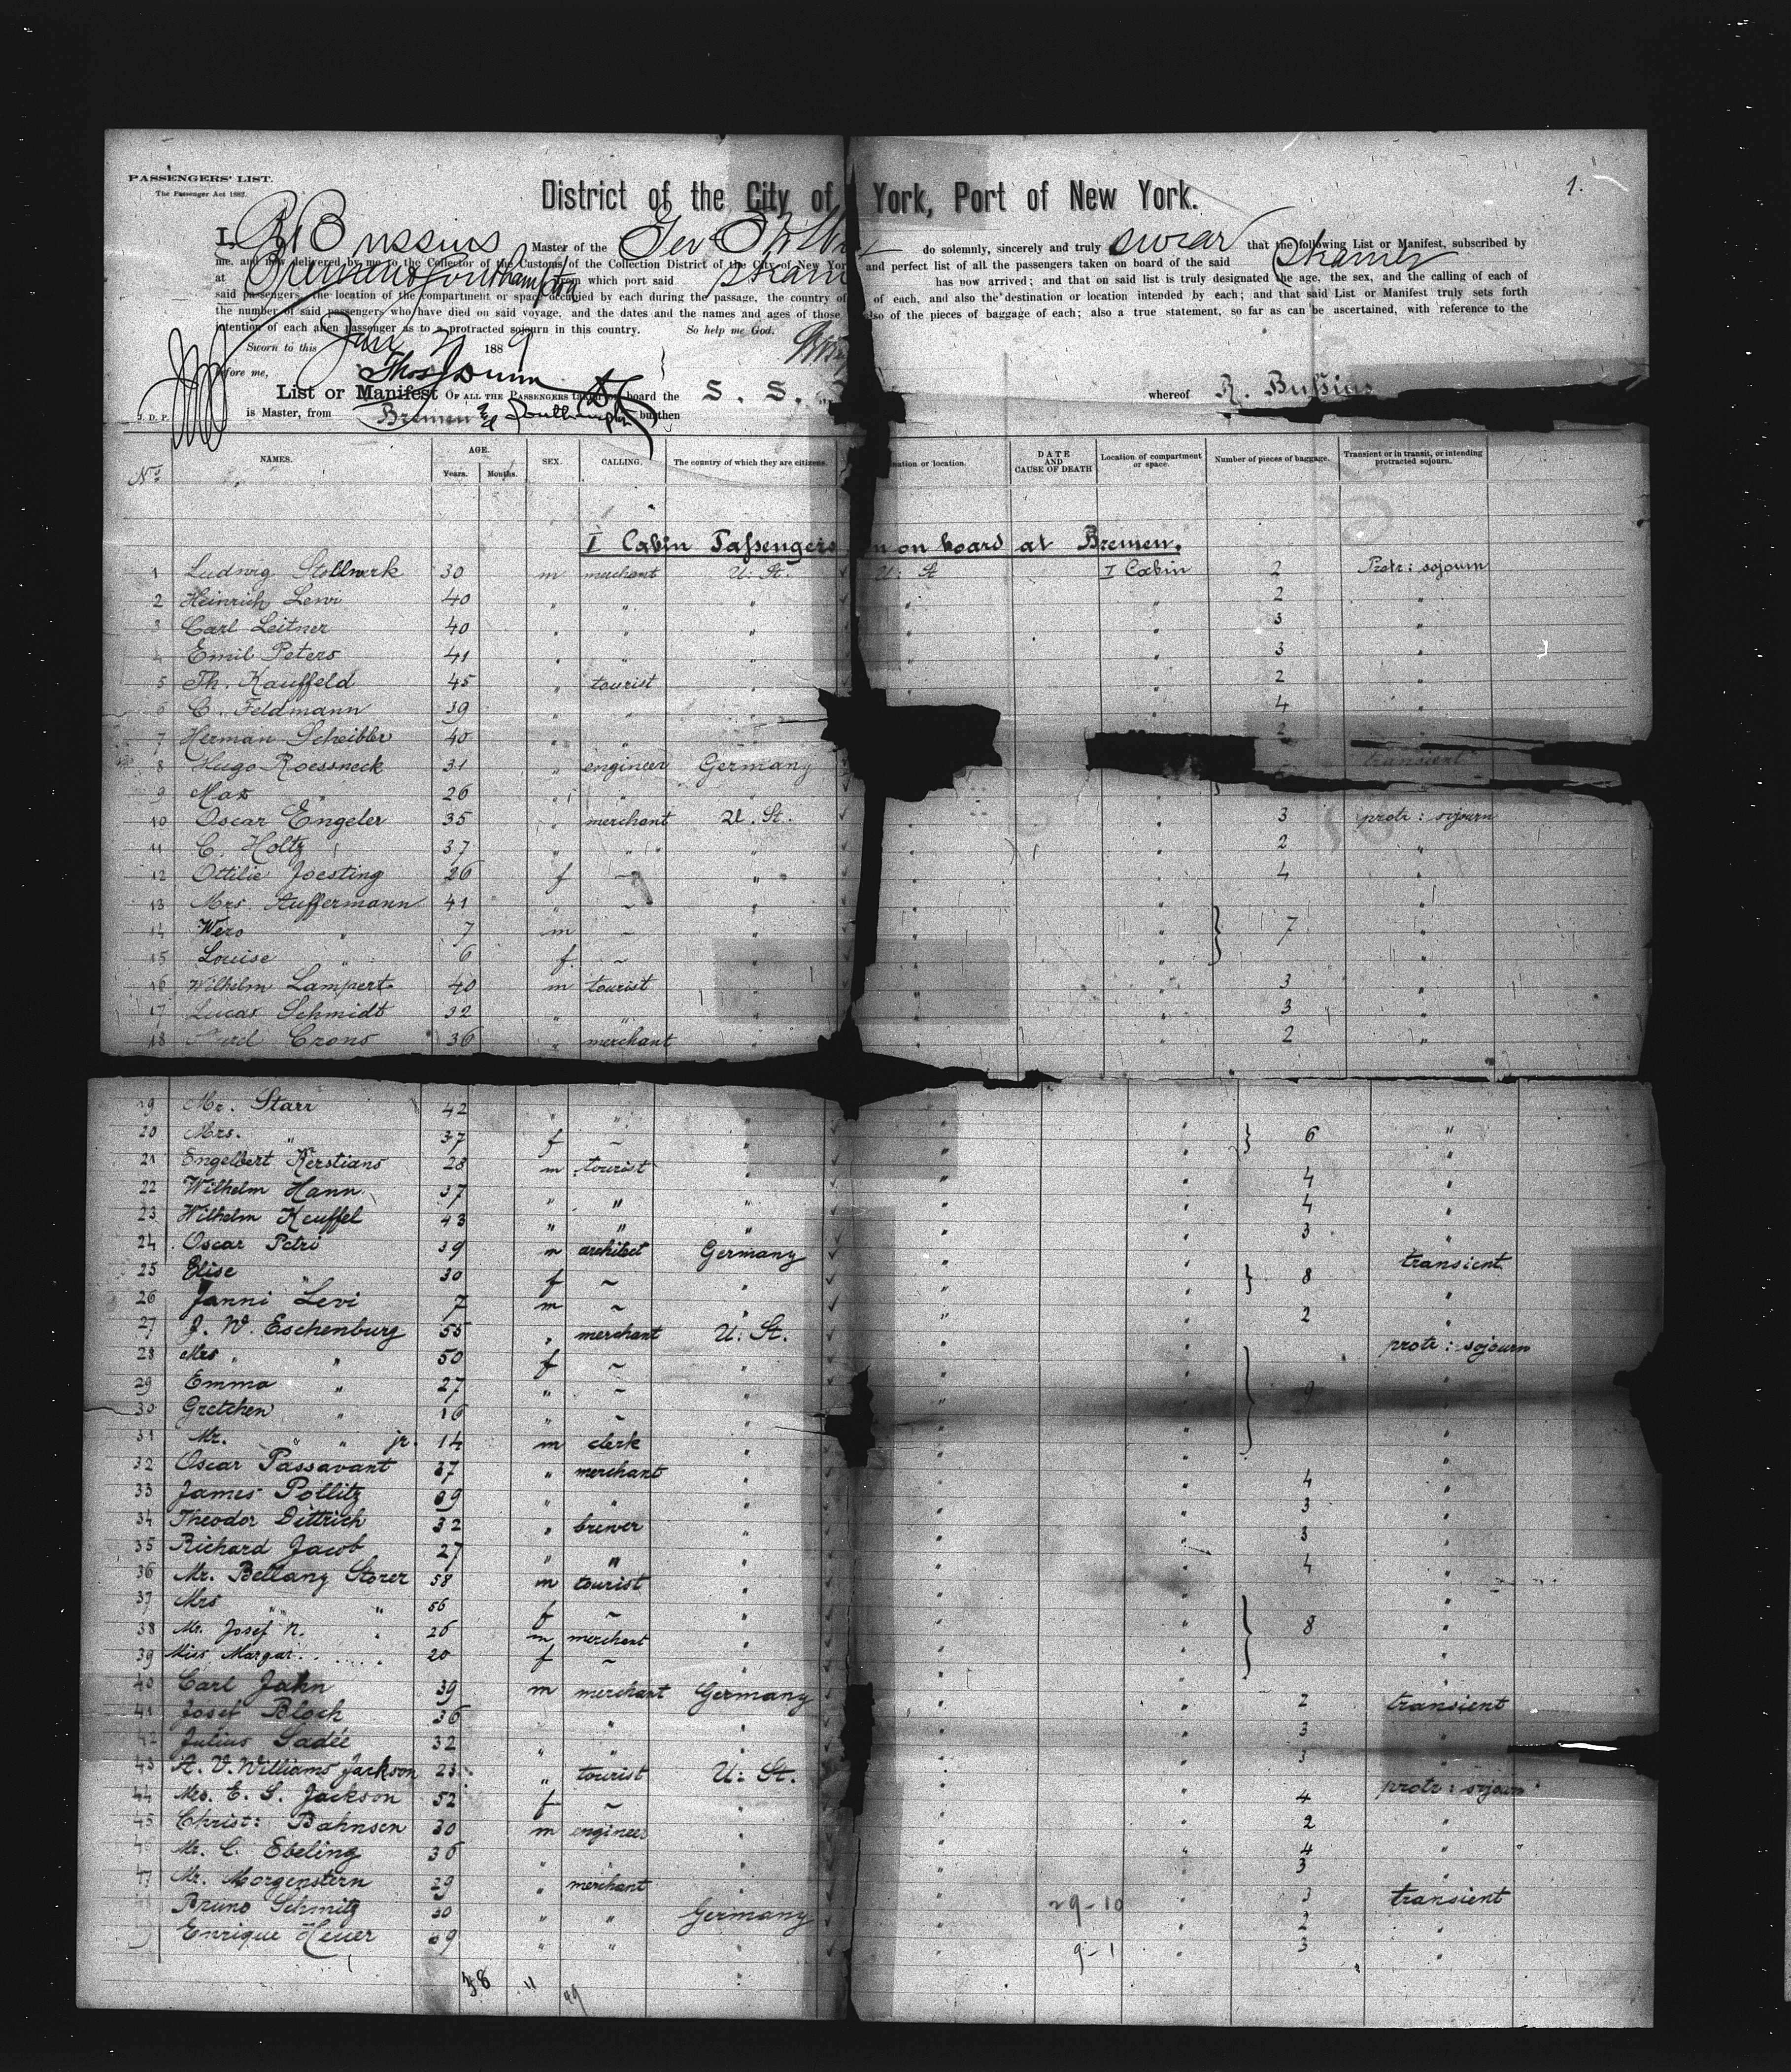 PASSENGERS' LIST.
The Passenger Act 1882.
1.
District of the City of York, Port of New York.
I, R Bussius Master of the do solemnly, sincerely and truly swear that the following List or Manifest, subscribed by
me, and now delivered by me to the Collector of the Customs of the Collection District of the City of New Yor and perfect list of all the passengers taken on board of the said Steamer
at Bremen & Southampton from which port said has now arrived; and that on said list is truly designated the age, the sex, and the calling of each of
said passengers, the location of the compartment or space occupied by each during the passage, the country of of each, and also the destination or location intended by each; and that said List or Manifest truly sets forth
the number of said passengers who have died on said voyage, and the dates and the names and ages of those also of the pieces of baggage of each; also a true statement, so far as can be ascertained, with reference to the
intention of each alien passenger as to a protracted sojourn in this country. So help me God.
Sworn to this 1889
before me, Thos Dunn
List or Manifest OF ALL THE PASSENGERS taken on board the S. S. whereof R. Bussius
J. D. P. is Master, from Bremen & Southampton burthen
No. NAMES. AGE. Years. Months. SEX. CALLING. The country of which they are citizens. ination or location. DATE AND CAUSE OF DEATH Location of compartment or space. Number of pieces of baggage. Transient or in transit, or intending protracted sojourn.
I Cabin Passengers n on board at Bremen.
1 Ludwig Stollwerk 30 m merchant U: St. U: St I Cabin 2 Protr: sojourn
2 Heinrich Lewi 40 " " " " " 2 "
3 Carl Leitner 40 " " " " " 3 "
4 Emil Peters 41 " " " " " 3 "
5 Th. Kauffeld 45 " tourist " " " 2 "
6 C. Feldmann 39 " " " " 4 "
7 Herman Scheibler 40 " " " 2 "
8 Hugo Roessneck 31 " engineer Germany transient
9 Max " 26 " " " " "
10 Oscar Engeler 35 " merchant U. St. " " 3 protr: sojourn
11 C. Holtz 37 " " " " " 2 "
12 Ottilie Joesting 26 f ~ " " " 4 "
13 Mrs. Auffermann 41 " ~ " " " "
14 Wero " 7 m ~ " " " 7 "
15 Louise " 6 f. ~ " " " "
16 Wilhelm Lampert 40 m tourist " " " 3 "
17 Lucas Schmidt 32 " " " " " 3 "
18 Ferd Crons 36 " merchant " " " 2 "
19 Mr. Starr 42 " " " " " "
20 Mrs. " 37 f ~ " " " 6 "
21 Engelbert Kerstians 28 m tourist " " " 4 "
22 Wilhelm Hann 37 " " " " " 4 "
23 Wilhelm Keuffel 43 " " " " " 3 "
24 Oscar Petri 39 m architect Germany " " transient
25 Elise " 30 f ~ " " " 8 "
26 Janni Levi 7 m ~ " " " 2 "
27 J. W. Eschenburg 55 " merchant U: St. " " protr: sojourn
28 Mrs. " 50 f ~ " " " "
29 Emma " 27 " ~ " " " 9 "
30 Gretchen " 16 " ~ " " " "
31 Mr. " " jr. 14 m clerk " " " "
32 Oscar Passavant 37 " merchant " " " 4 "
33 James Pollitz 39 " " " " " 3 "
34 Theodor Dittrich 32 " brewer " " " 3 "
35 Richard Jacob 27 " " " " " 4 "
36 Mr. Bellany Storer 58 m tourist " " " "
37 Mrs " " 56 f ~ " " " "
38 Mr. Josef N. " 26 m merchant " " " 8 "
39 Miss Margar. " 20 f ~ " " " "
40 Carl Jahn 39 m merchant Germany " " 2 transient
41 Josef Bloch 36 " " " " " 3 "
42 Julius Sadée 32 " " " " " 3 "
43 A. V. Williams Jackson 23 " tourist U: St. " " protr: sojourn
44 Mrs. E. S. Jackson 52 f ~ " " " 4 "
45 Christ: Bahnsen 30 m engineer " " " 2 "
46 Mr. C. Ebeling 36 " " " " " 4 "
47 Mr. Morgenstern 29 " merchant " " " 3
48 Bruno Schmitz 30 " " Germany " 29-10 " 3 transient
Enrique Heuer 39 " " " " 9-1 " 2 "
3 "
38 11 49